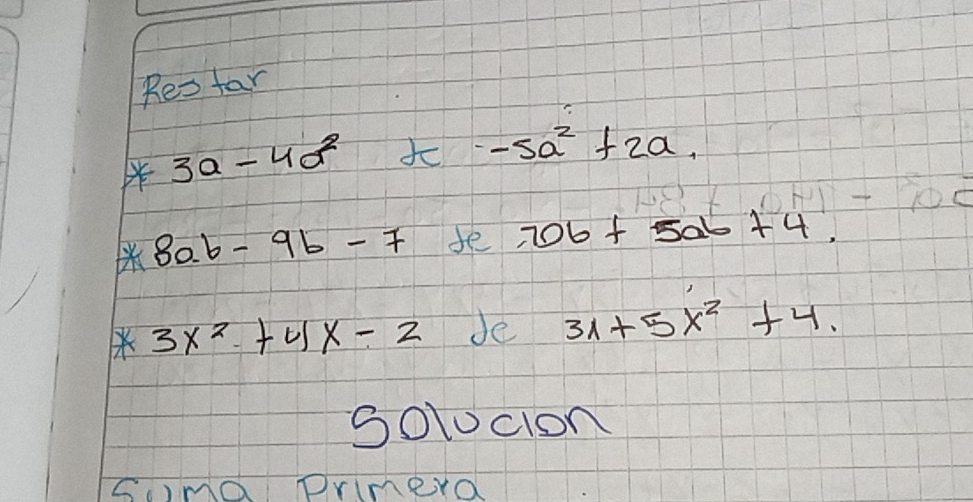 Restar
* 3a - 4a² de -5a² + 2a.
* 8ab - 9b - 7 de 10b + 5ab + 4.
* 3x² + 4x - 2 de 3x + 5x² + 4.
Solucion
Suma Primera